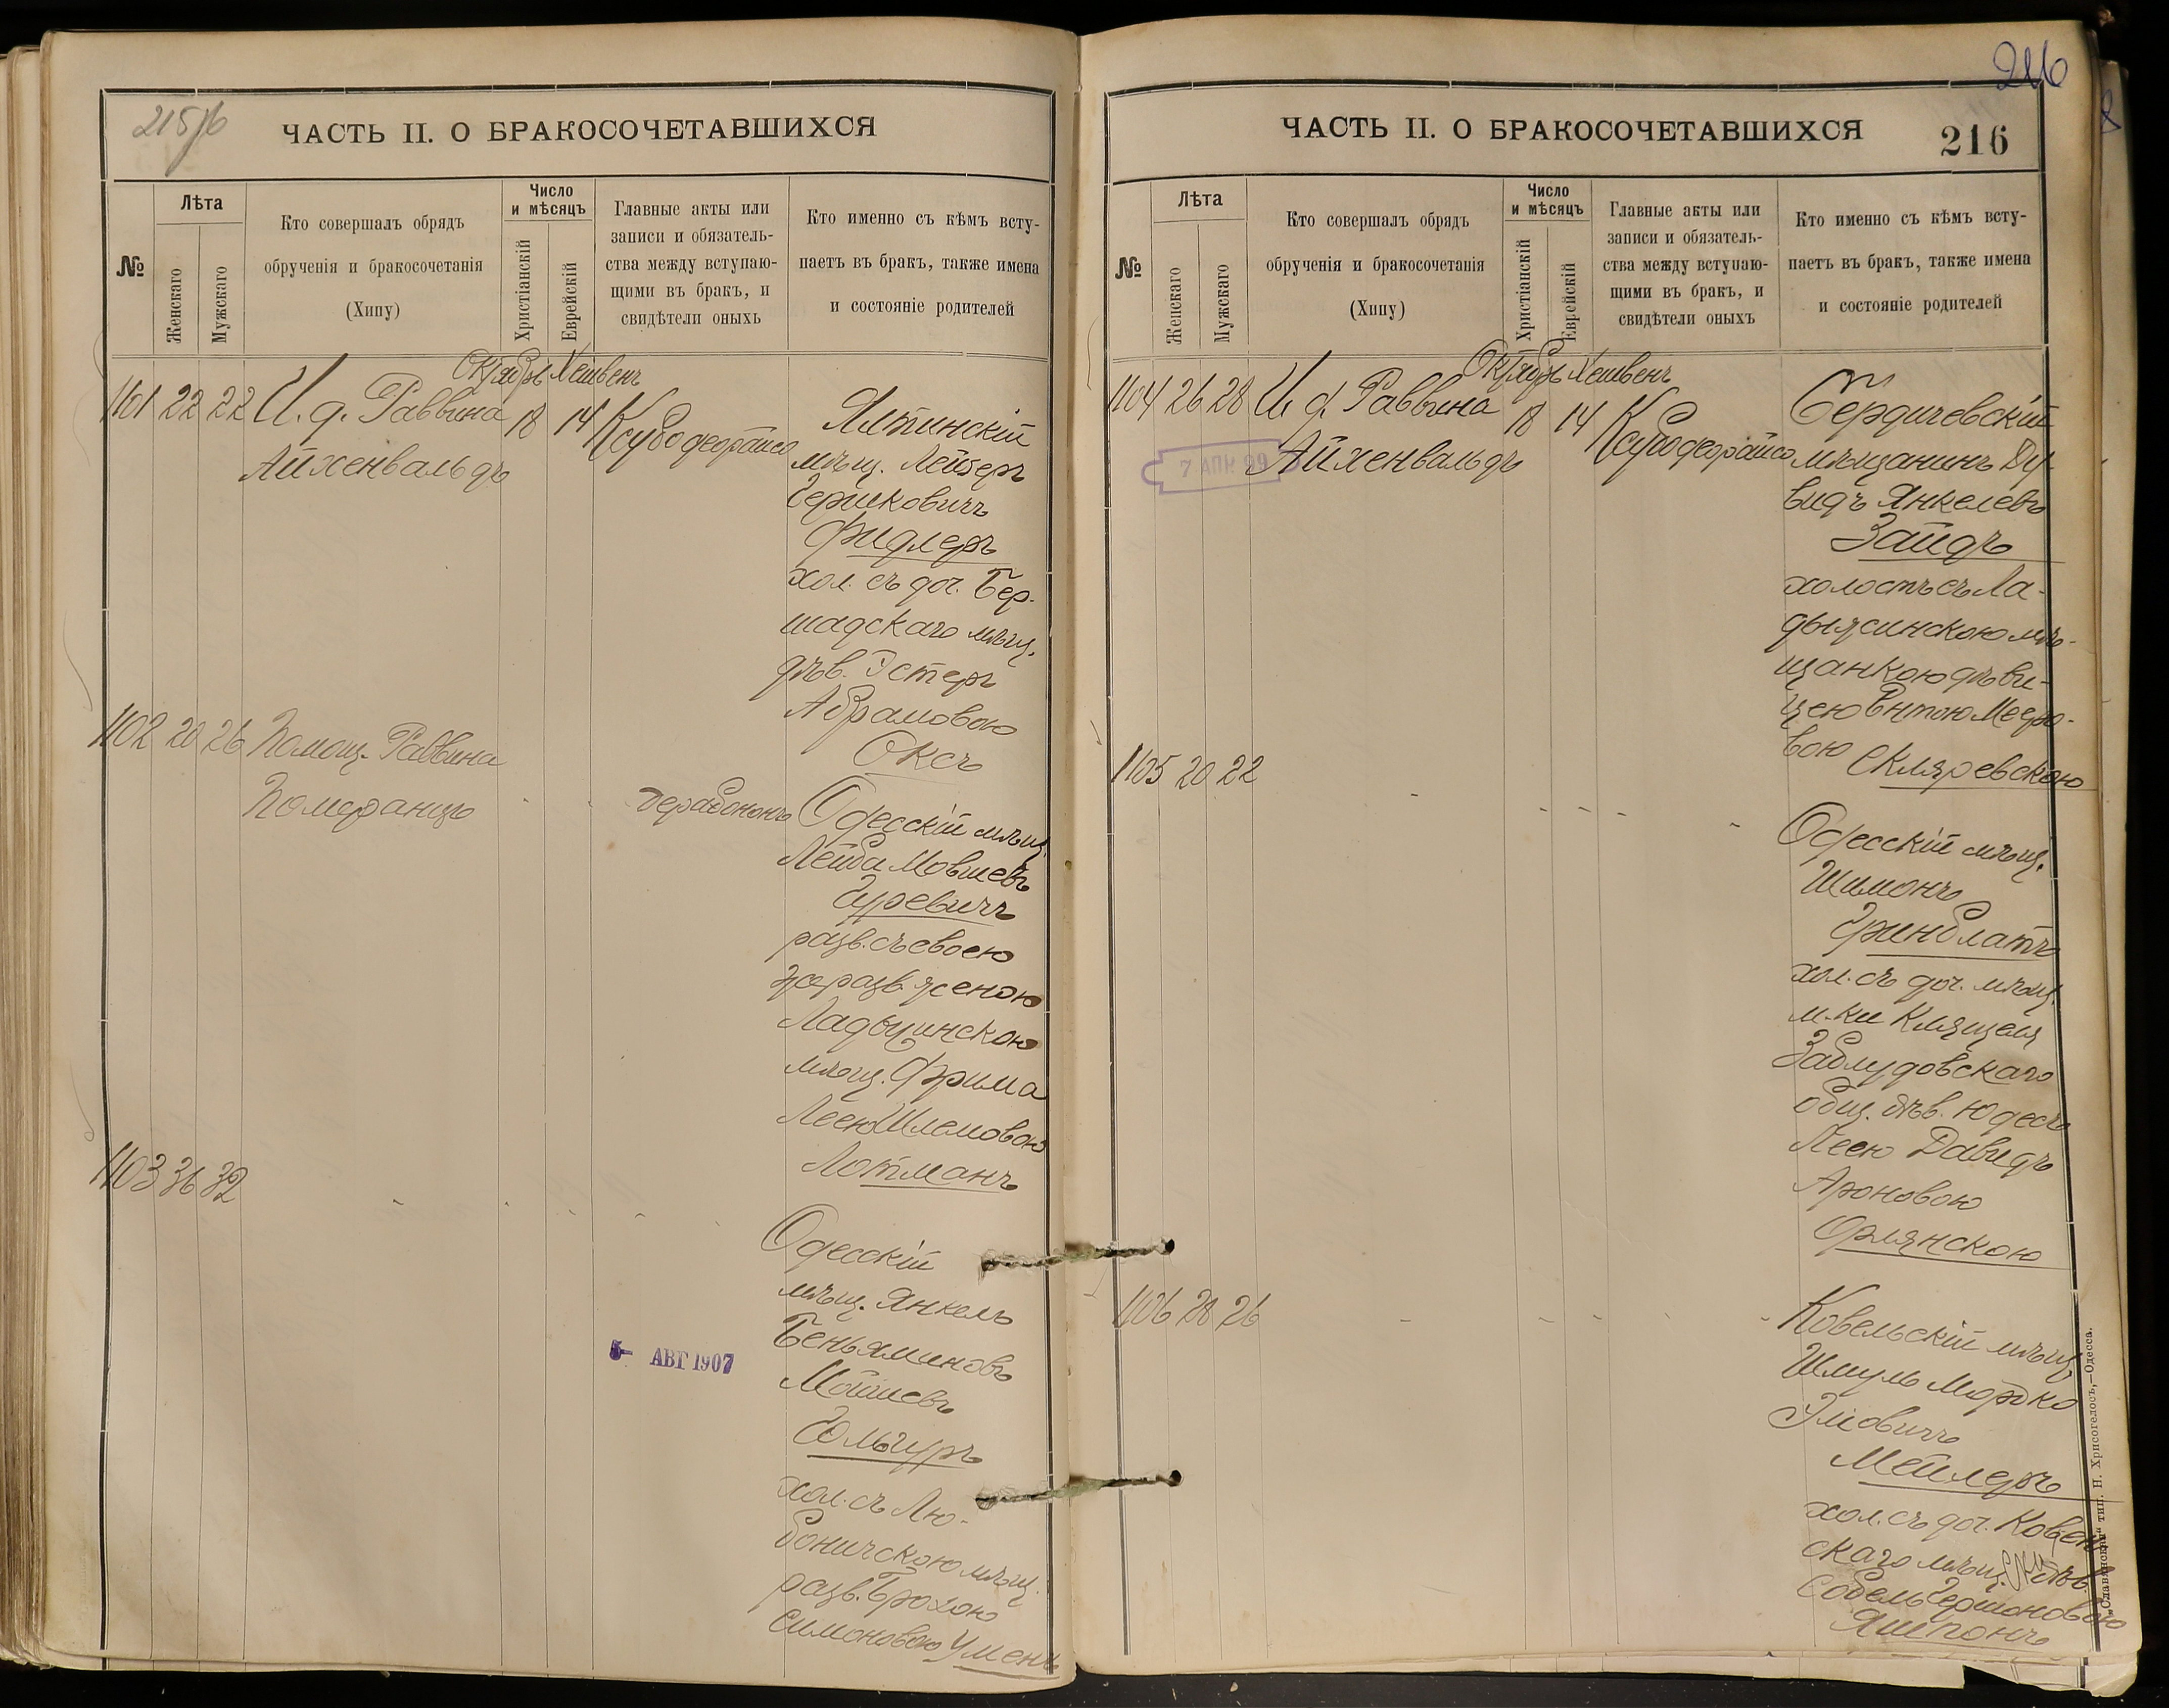 215/б
ЧАСТЬ II. О БРАКОСОЧЕТАВШИХСЯ
№
Лѣта
Женскаго
Мужскаго
Кто совершалъ обрядъ
обрученія и бракосочетанія
(Хипу)
Число
и мѣсяцъ
Христіанскій
Еврейскій
Главные акты или
записи и обязатель-
ства между вступаю-
щими въ бракъ, и
свидѣтели оныхь
Кто именно съ кѣмъ всту-
паетъ въ бракъ, также имена
и состояніе родителей
Октябрь Хешвенъ
1101 22 22 И. д. Раввина 18 14
Айхенвальдъ
Ялтинскій
мѣщ. Лейзеръ
Гершковичъ
Фидлеръ
хол. съ доч. Бер-
шадскаго мѣщ.
дѣв. Эстеръ
Абрамовою
Оксъ
1102 20 26 Помощ. Раввина
Померанцъ
Одесскій мѣщ.
Лейба Мовшевъ
Гуревичъ
разв. съ своею
же разв. женою
Ладыжинскою
мѣщ. Фрима
Леею Шлемовою
Лотманъ
1103 36 32
Одесскій
мѣщ. Янкель
Беньяминовъ
Мошиевъ
Гольгуръ
хол. съ Лю-
боничскою мѣщ.
разв. Брохою
Симоновою Уменъ
5- АВГ 1907
216
ЧАСТЬ II. О БРАКОСОЧЕТАВШИХСЯ
216
№
Лѣта
Женскаго
Мужскаго
Кто совершалъ обрядъ
обрученія и бракосочетанія
(Хипу)
Число
и мѣсяцъ
Христіанскій
Еврейскій
Главные акты или
записи и обязатель-
ства между вступаю-
щими въ бракъ, и
свидѣтели оныхъ
Кто именно съ кѣмъ всту-
паетъ въ бракъ, также имена
и состояніе родителей
Октябрь Хешвенъ
1104 26 28 И. д. Раввина 18 14
Айхенвальдъ
7 АПР 99
Бердичевскій
мѣщанинъ Ду-
видъ Янкелевъ
Зайдъ
холостъ съ Ла-
дыжинскою мѣ-
щанкою дѣви-
цею Ентою Мееро-
вою Скляревскою
1105 20 22
Одесскій мѣщ.
Шимонъ
Гринблатъ
хол. съ доч. мѣщ.
м-ки Клящеля
Заблудовскаго
общ. дѣв. Юдесъ
Леею Давидъ
Ароновою
Орлянскою
1106 28 26
Ковельскій мѣщ.
Шмуль Мортко
Эліовичъ
Мейлеръ
хол. съ доч. Ковен
скаго мѣщ. дѣв.
Собель Гершоновою
Яшпонъ
„Славянская" тип. Н. Хрисогелосъ,—Одесса.